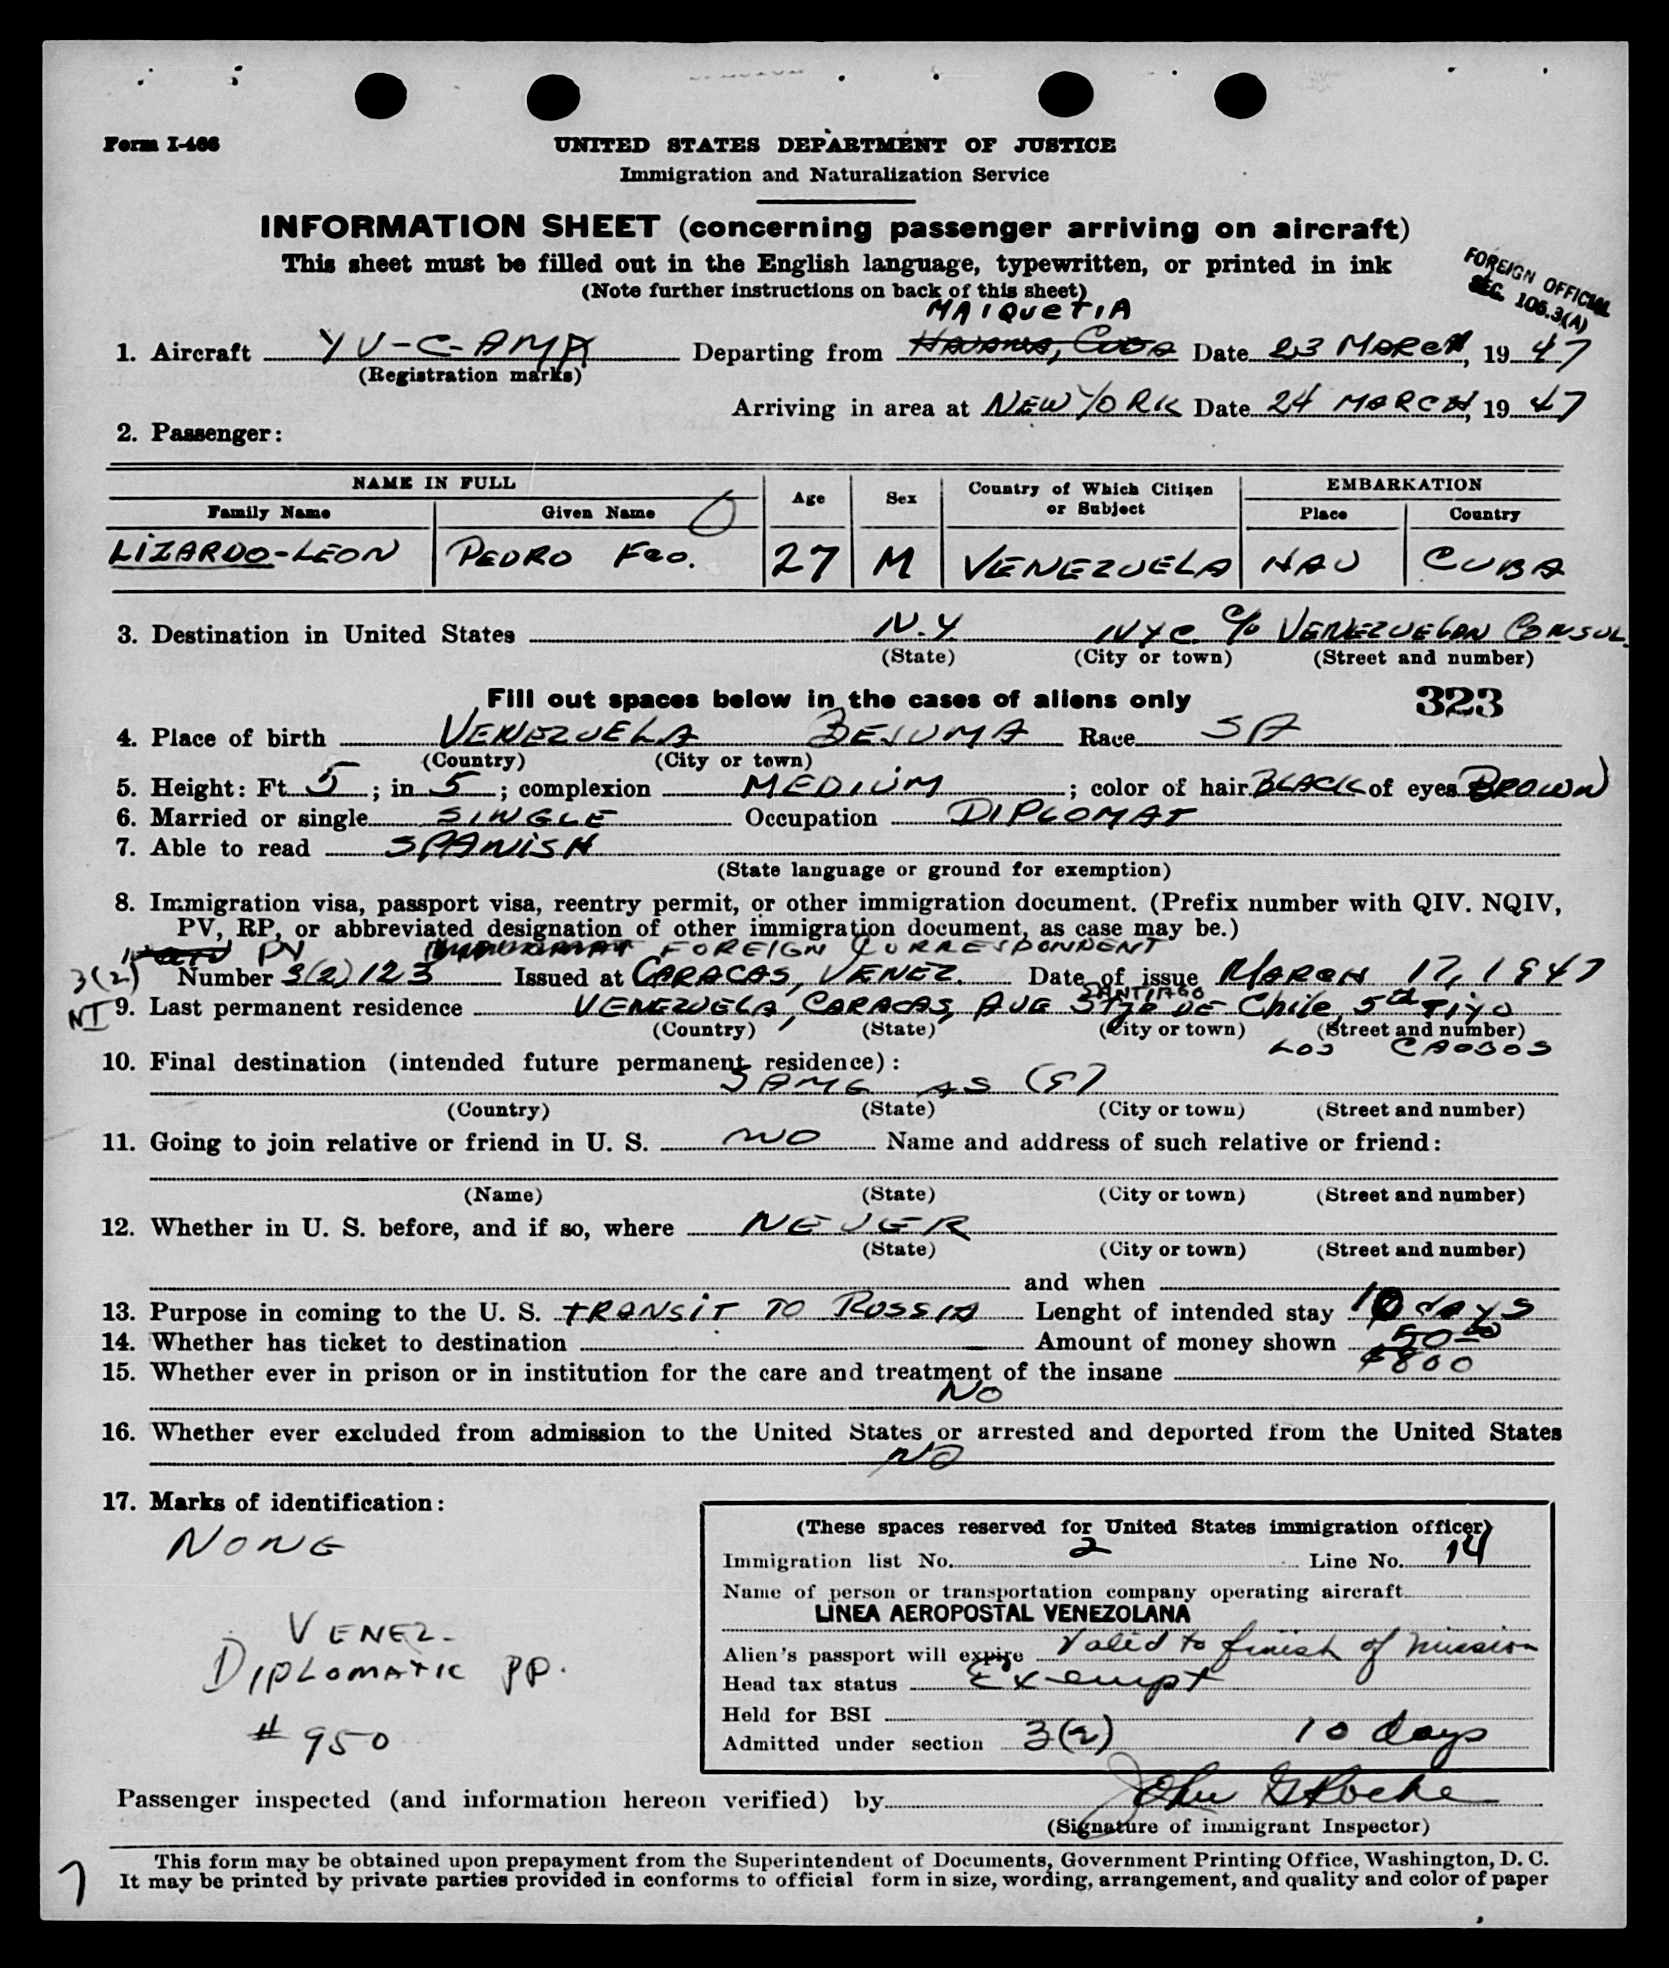 Form I-466
UNITED STATES DEPARTMENT OF JUSTICE
Immigration and Naturalization Service
INFORMATION SHEET (concerning passenger arriving on aircraft)
This sheet must be filled out in the English language, typewritten, or printed in ink
(Note further instructions on back of this sheet)
FOREIGN OFFICIAL
SEC. 105.3(A)
MAIQUETIA
1. Aircraft YV-C-AMA Departing from Havana, Cuba Date 23 MARCH, 19 47
(Registration marks)
Arriving in area at NEW YORK Date 24 MARCH, 19 47
2. Passenger:
NAME IN FULL Age Sex Country of Which Citizen or Subject EMBARKATION
Family Name Given Name Place Country
LIZARDO-LEON PEDRO Fco. 27 M VENEZUELA HAV CUBA
3. Destination in United States N.Y NYC c/o VENEZUELAN CONSUL.
(State) (City or town) (Street and number)
Fill out spaces below in the cases of aliens only 323
4. Place of birth VENEZUELA BEJUMA Race SA
(Country) (City or town)
5. Height: Ft. 5; in 5; complexion MEDIUM; color of hair BLACK of eyes BROWN
6. Married or single SINGLE Occupation DIPLOMAT
7. Able to read SPANISH
(State language or ground for exemption)
8. Immigration visa, passport visa, reentry permit, or other immigration document. (Prefix number with QIV. NQIV,
PV, RP, or abbreviated designation of other immigration document, as case may be.)
PV FOREIGN CORRESPONDENT
3(2) Number 3(2) 123 Issued at CARACAS, VENEZ. Date of issue MARCH 17, 1947
SANTIAGO
NI 9. Last permanent residence VENEZUELA, CARACAS, AVE Stgo DE Chile, 5ta
(Country) (State) (City or town) (Street and number)
LOS CAOBOS
10. Final destination (intended future permanent residence):
SAME AS (9)
(Country) (State) (City or town) (Street and number)
11. Going to join relative or friend in U. S. NO Name and address of such relative or friend:
(Name) (State) (City or town) (Street and number)
12. Whether in U. S. before, and if so, where NEVER
(State) (City or town) (Street and number)
and when
13. Purpose in coming to the U. S. TRANSIT TO RUSSIA Lenght of intended stay 10 days
14. Whether has ticket to destination Amount of money shown 50.00
$800
15. Whether ever in prison or in institution for the care and treatment of the insane
NO
16. Whether ever excluded from admission to the United States or arrested and deported from the United States
NO
17. Marks of identification:
NONE
VENEZ.
DIPLOMATIC PP.
# 950
(These spaces reserved for United States immigration officer)
Immigration list No. 2 Line No. 14
Name of person or transportation company operating aircraft
LINEA AEROPOSTAL VENEZOLANA
Alien's passport will expire Valid to finish of mission
Head tax status Exempt
Held for BSI
Admitted under section 3(2) 10 days
Passenger inspected (and information hereon verified) by John G Roche
(Signature of immigrant Inspector)
This form may be obtained upon prepayment from the Superintendent of Documents, Government Printing Office, Washington, D. C.
It may be printed by private parties provided in conforms to official form in size, wording, arrangement, and quality and color of paper
7